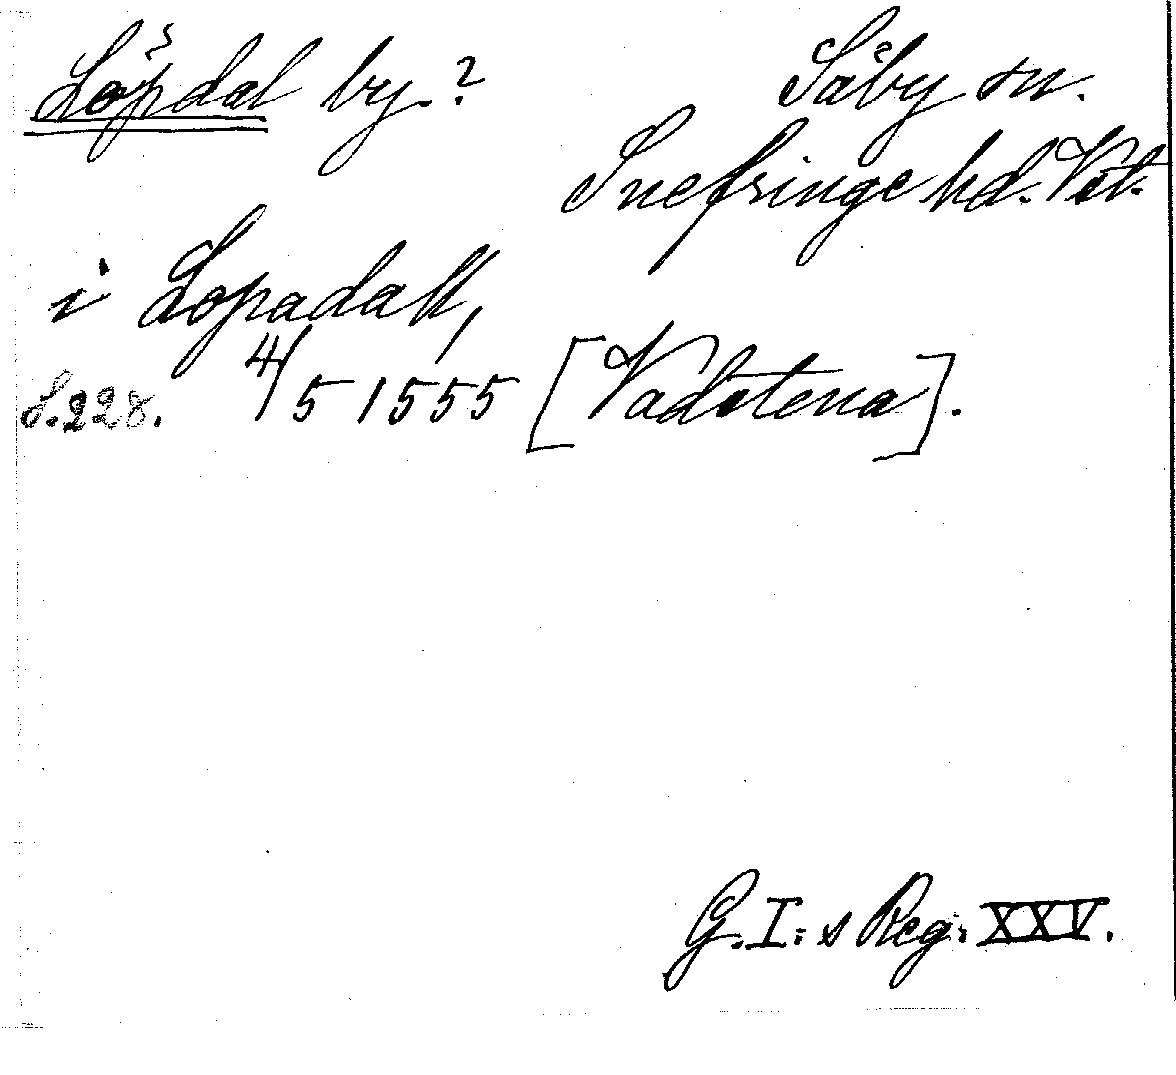 Löpdal by.?
Säby sn.
Snefringe hd. Vstl.
i Lopadall,
S.228. 4/5 1555 [Vadstena].
G.I:s Reg. XXV.